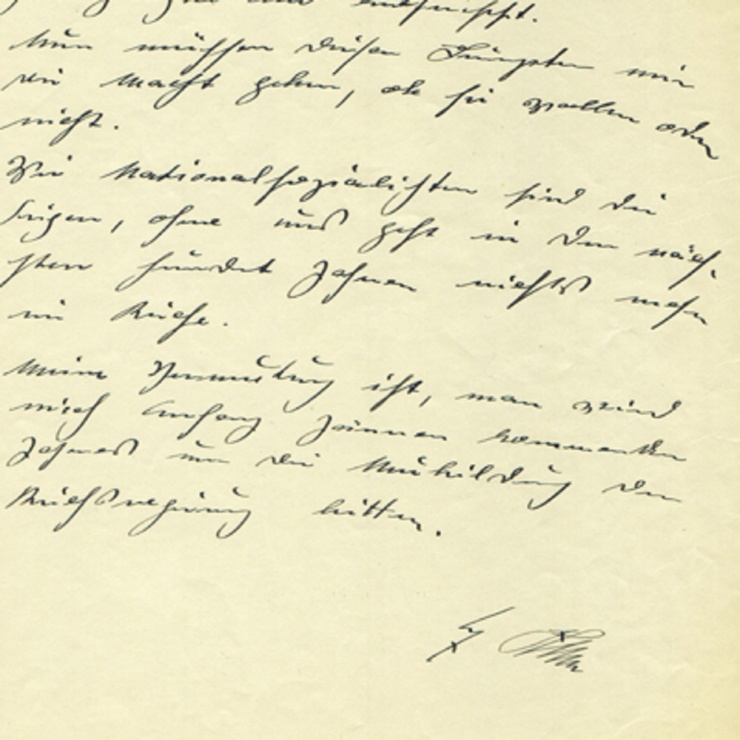 Nun müssen diesen Jüngsten wir
die Macht geben, ob sie wollen oder
nicht.
Wir Nationalsozialisten sind die
Sieger, ohne uns geht in den näch-
sten hundert Jahren nichts mehr
im Reiche.
Meine Vermutung ist, man wird
mich Anfang Jänner kommenden
Jahres um die Neubildung der
Reichsregierung bitten.